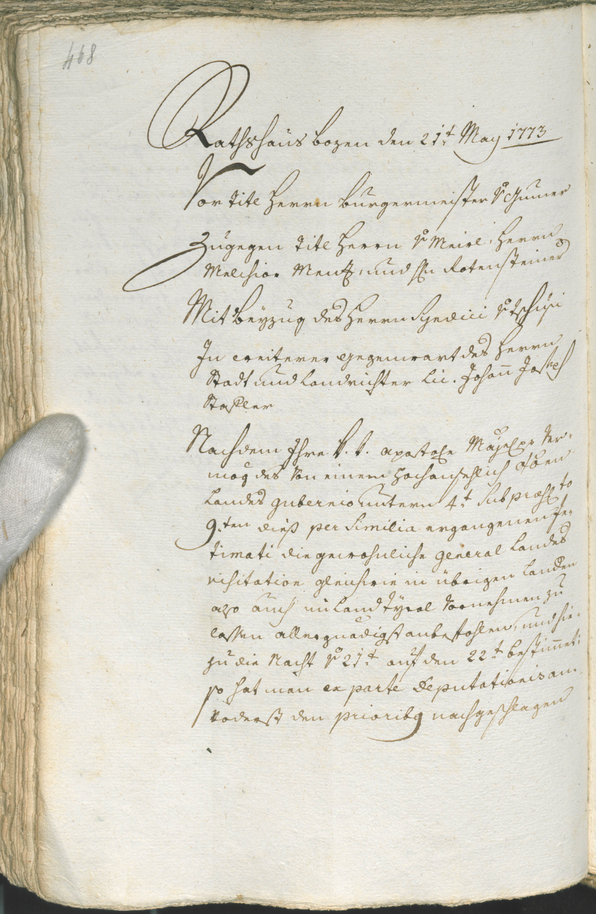 468
Rathshaus bozen den 21t May 1773
Vor tite herrn burgermeister v Gumer
Zugegen tite herrn v Meirl, herrn
Melchior Mentz, und Hn Rotensteiner
Mit beyzug des herrn Syndici v
In weiterer gegenwart des herrn
Stadt und Landrichter Lic. Johann Joseph
Stapler
Nachdem Ihre k. k. apostole Mayest Ver-
mög des von einem hochansehlich Ober
Landes gubernio untern 4t et praes to
9ten dieß per Similia ergangenen In-
timati die gewohnliche general Landes
visitation gleichwie in übrigen Landen
also auch in Land tyrol vornehmen zu
lassen allergnädigst anbefohlen, und hie-
zu die Nacht v 21t auf den 22t bestimmet:
so hat man ex parte Deputationis am
vorderst den prioribg nachgeschlagen